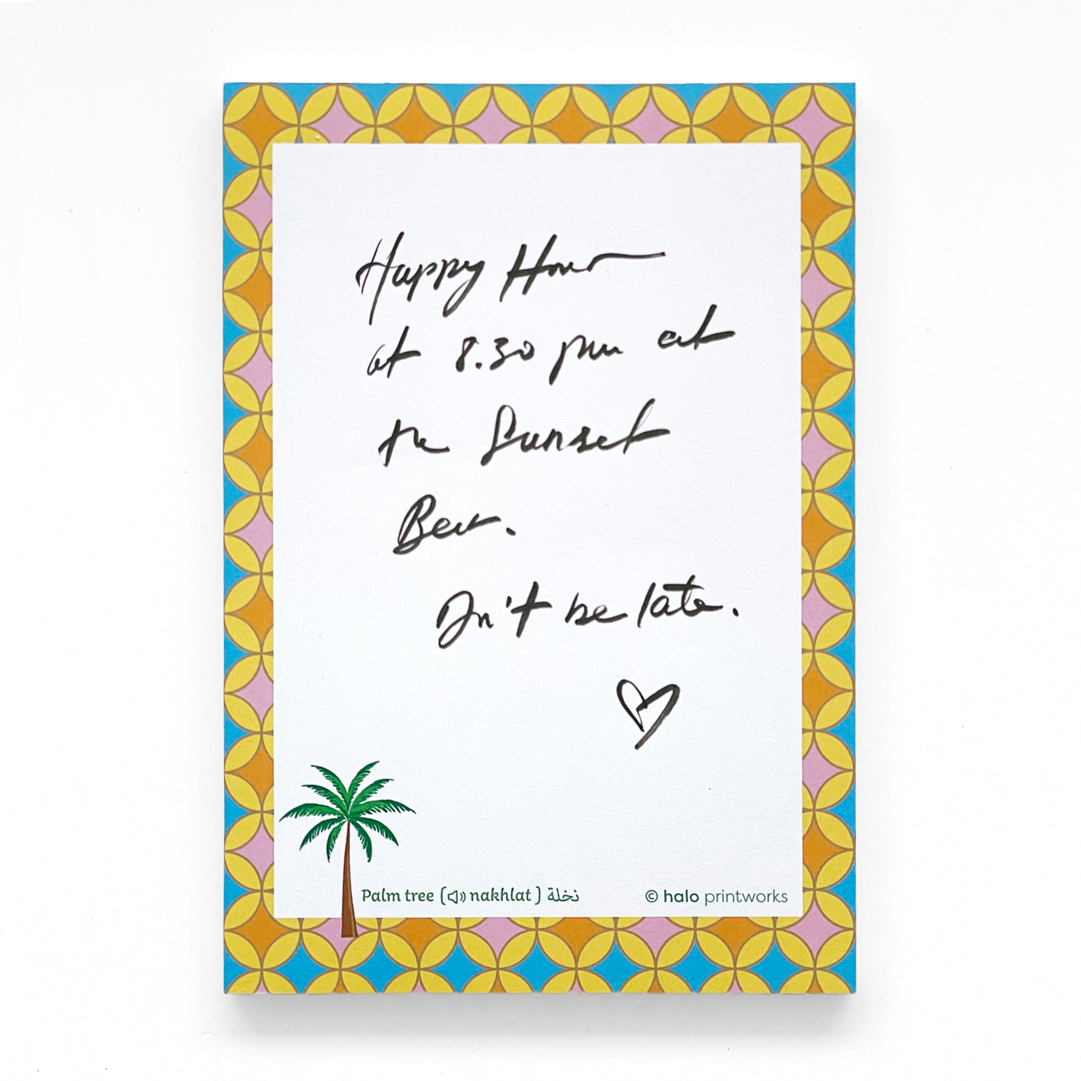 Happy Hour
at 8.30 pm at
the Sunset
Bar.
Don't be late.
Palm tree (nakhlat) نخلة
© halo printworks